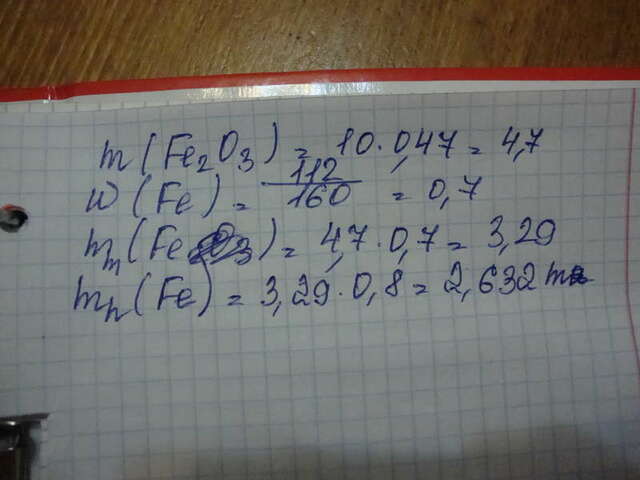 m (Fe₂O₃) = 10·0,47 = 4,7
W (Fe) = 112/160 = 0,7
mₘ(Fe) = 4,7·0,7 = 3,29
mₙ(Fe) = 3,29·0,8 = 2,632 т